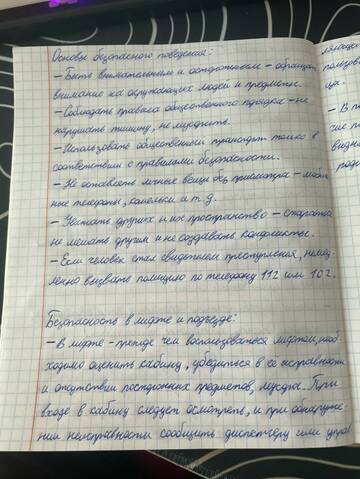 Основы безопасного поведения:
– Быть внимательным и осторожным – обращать
внимание на окружающих людей и предметы.
– Соблюдать правила общественного порядка – не
нарушать тишину, не мусорить.
– Использовать общественный транспорт только в
соответствии с правилами безопасности.
– Не оставлять личные вещи без присмотра –
ные телефоны, кошельки и т.д.
– Уважать других и их пространство – стараться
не мешать другим и не создавать конфликты.
– Если человек стал свидетелем преступления, неме-
дленно вызвать полицию по телефону 112 или 102.
Безопасность в лифте и подъезде:
– В лифте – прежде чем воспользоваться лифтом, необ-
ходимо оценить кабину, убедиться в её исправности
и отсутствии посторонних предметов, мусора. При
входе в кабину следует осмотреть, и при обнаруже-
нии неисправности сообщить диспетчеру или управ
пользов
– В п
видно